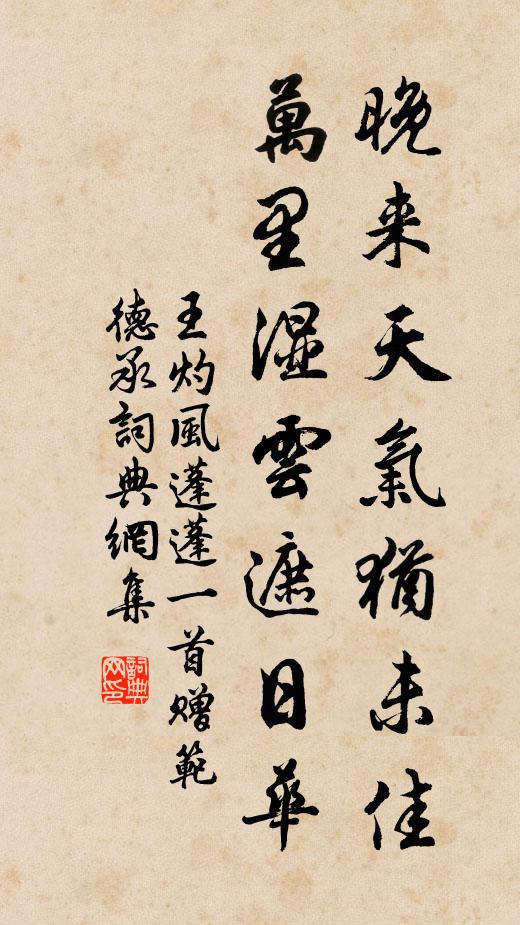 晚来天氣猶未佳
萬里濕雲遮日華
王灼風蓬蓬一首贈範
德承詞典網集
詞典
网印